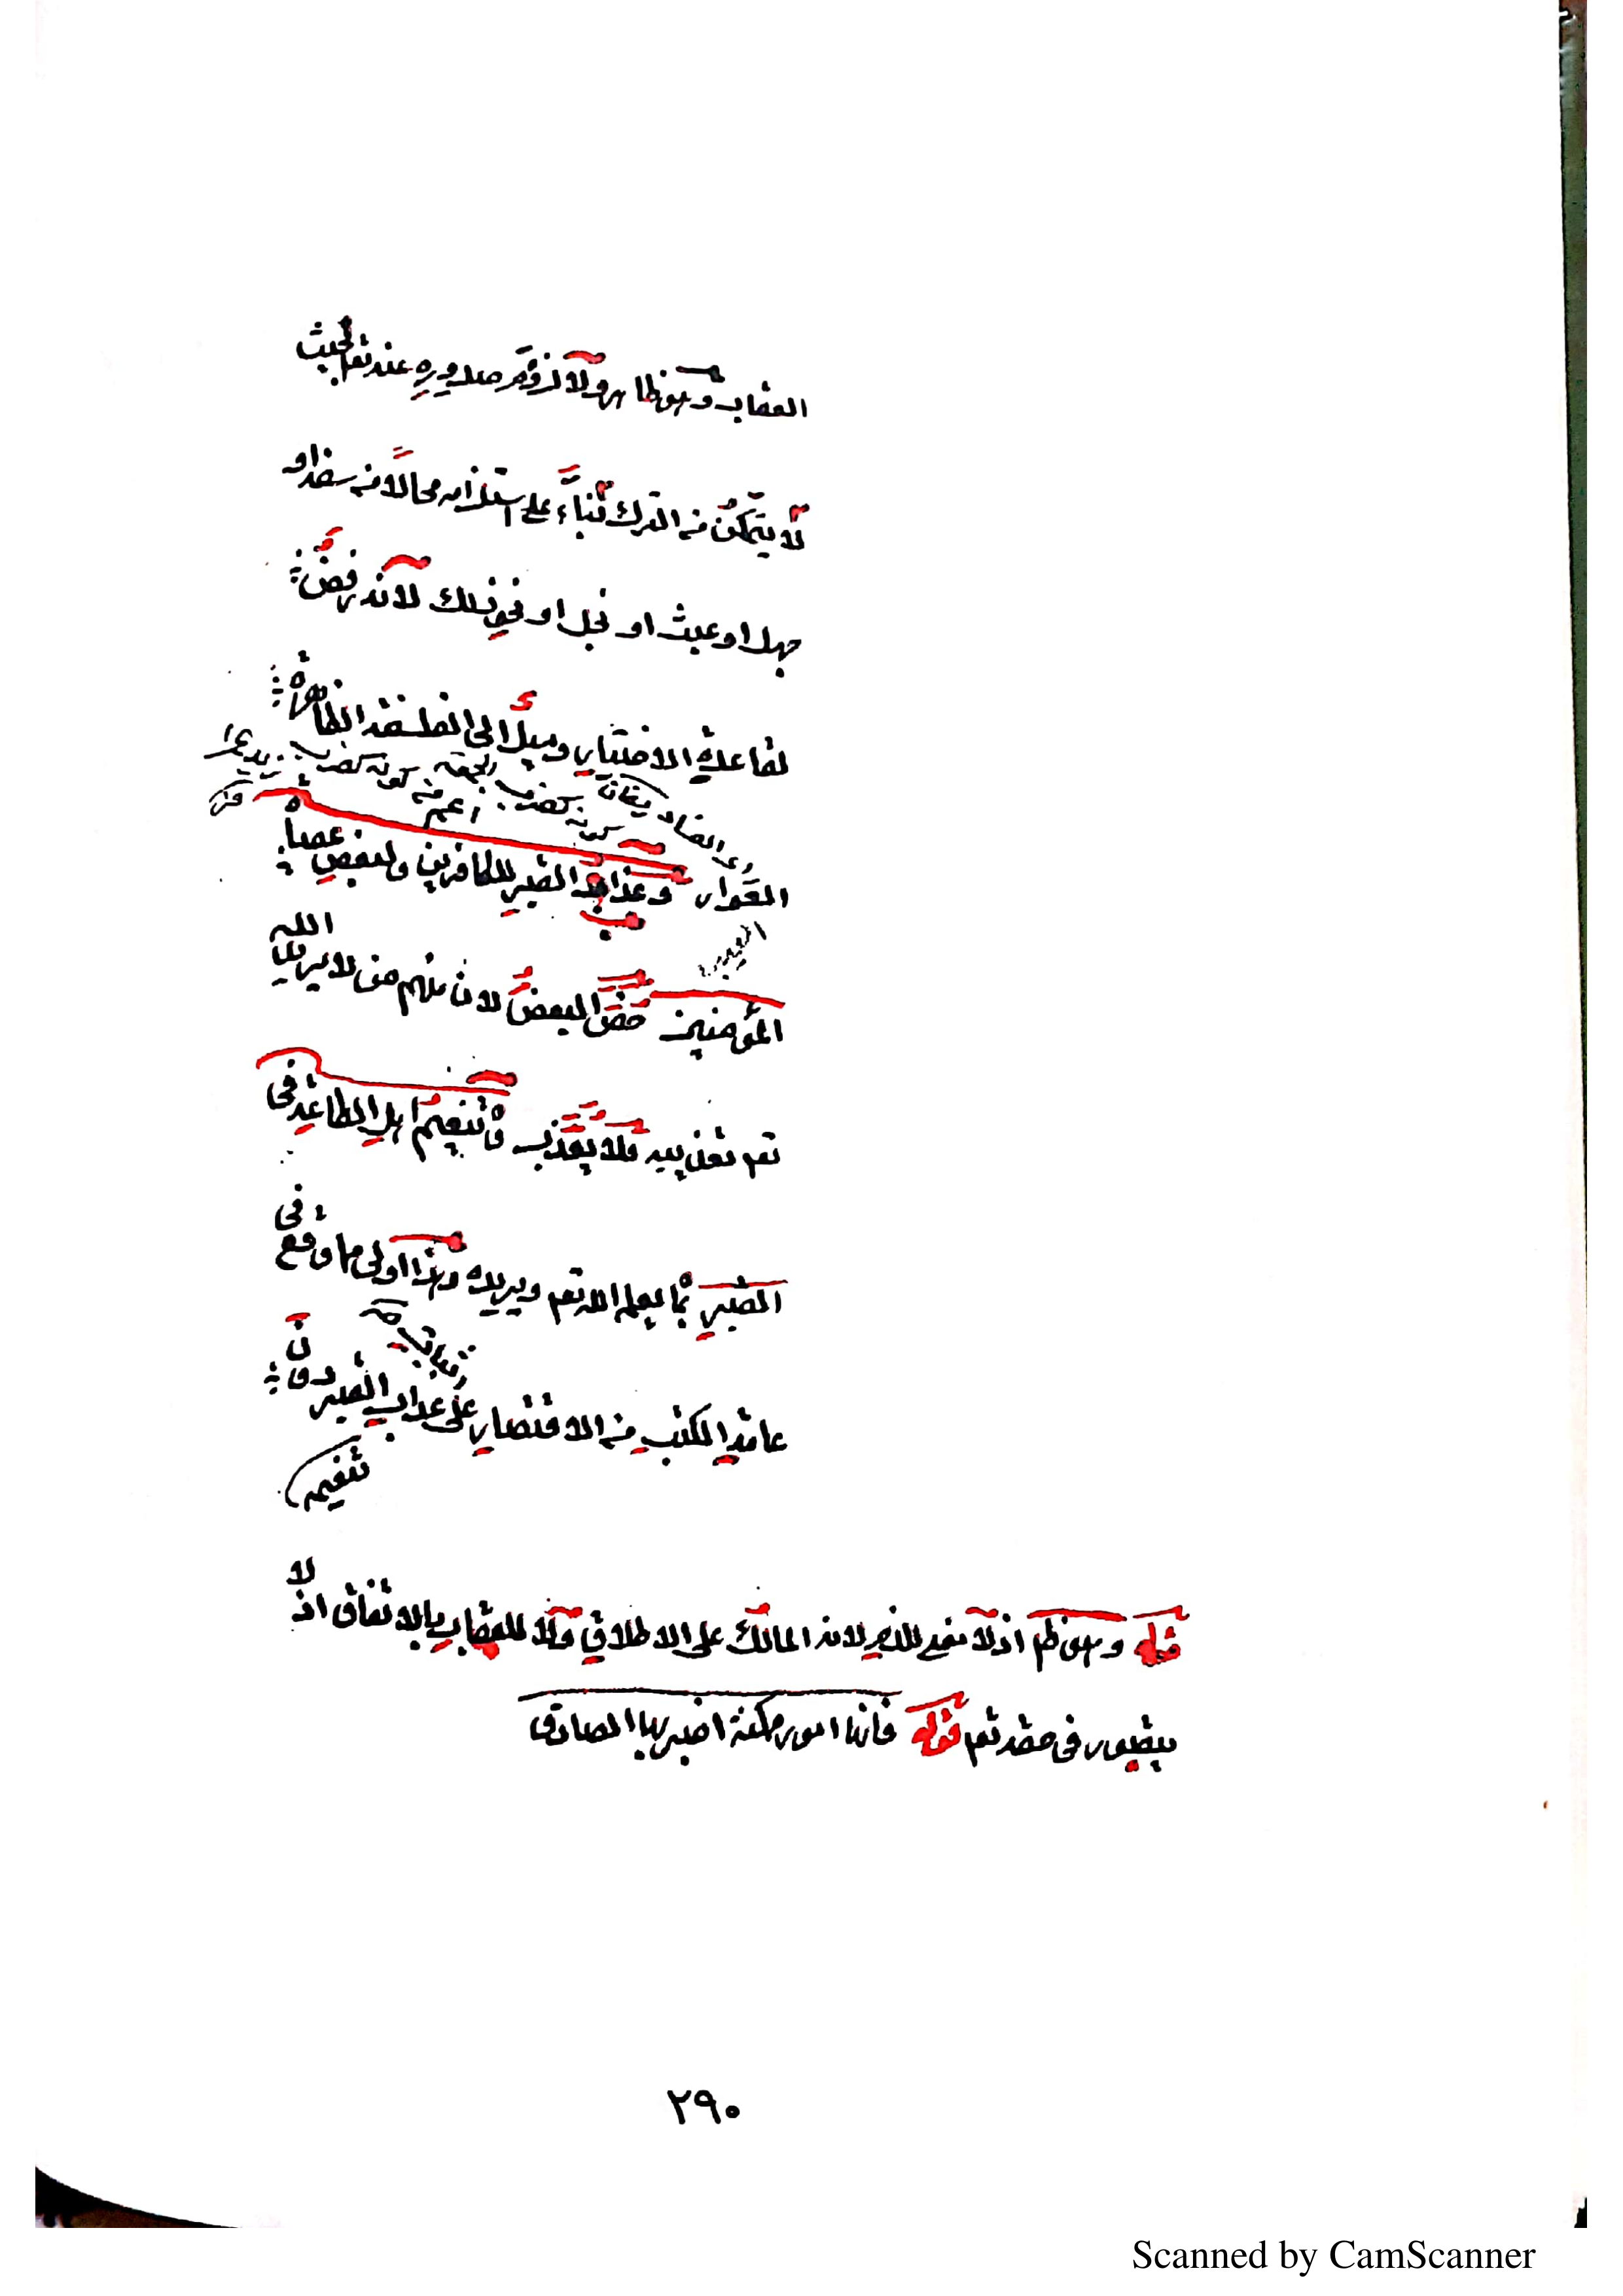 العقاب وهو ظاهر ولا لزوم صدوره عنه تعالى بحيث
لا يتمكن من الترك بناءً على استلزامه محالا من سفه او
جهل او عبث او بخل او نحو ذلك لانه رفض
لقاعدة الاختيار وميل الى الفلسفة الظاهرة
العوار وعذاب القبر للكافرين ولبعض عصاة
المؤمنين خص البعض لان منهم من لا يريد الله
تعم تعذيبه فلا يعذب وتنعيم اهل الطاعة فى
القبر بما يعلم الله تعم ويريده وهذا اولى مما وقع فى
عامة الكتب من الاقتصار على عذاب القبر دون
تنعيمه
قوله وهو ظم اذ لا منع للغير لانه المالك على الاطلاق ولا للعقاب بالاتفاق اذ لا
يتصور فى حقه تعم قوله فانها امور ممكنة اخبر بها الصادق
٢٩٠
Scanned by CamScanner